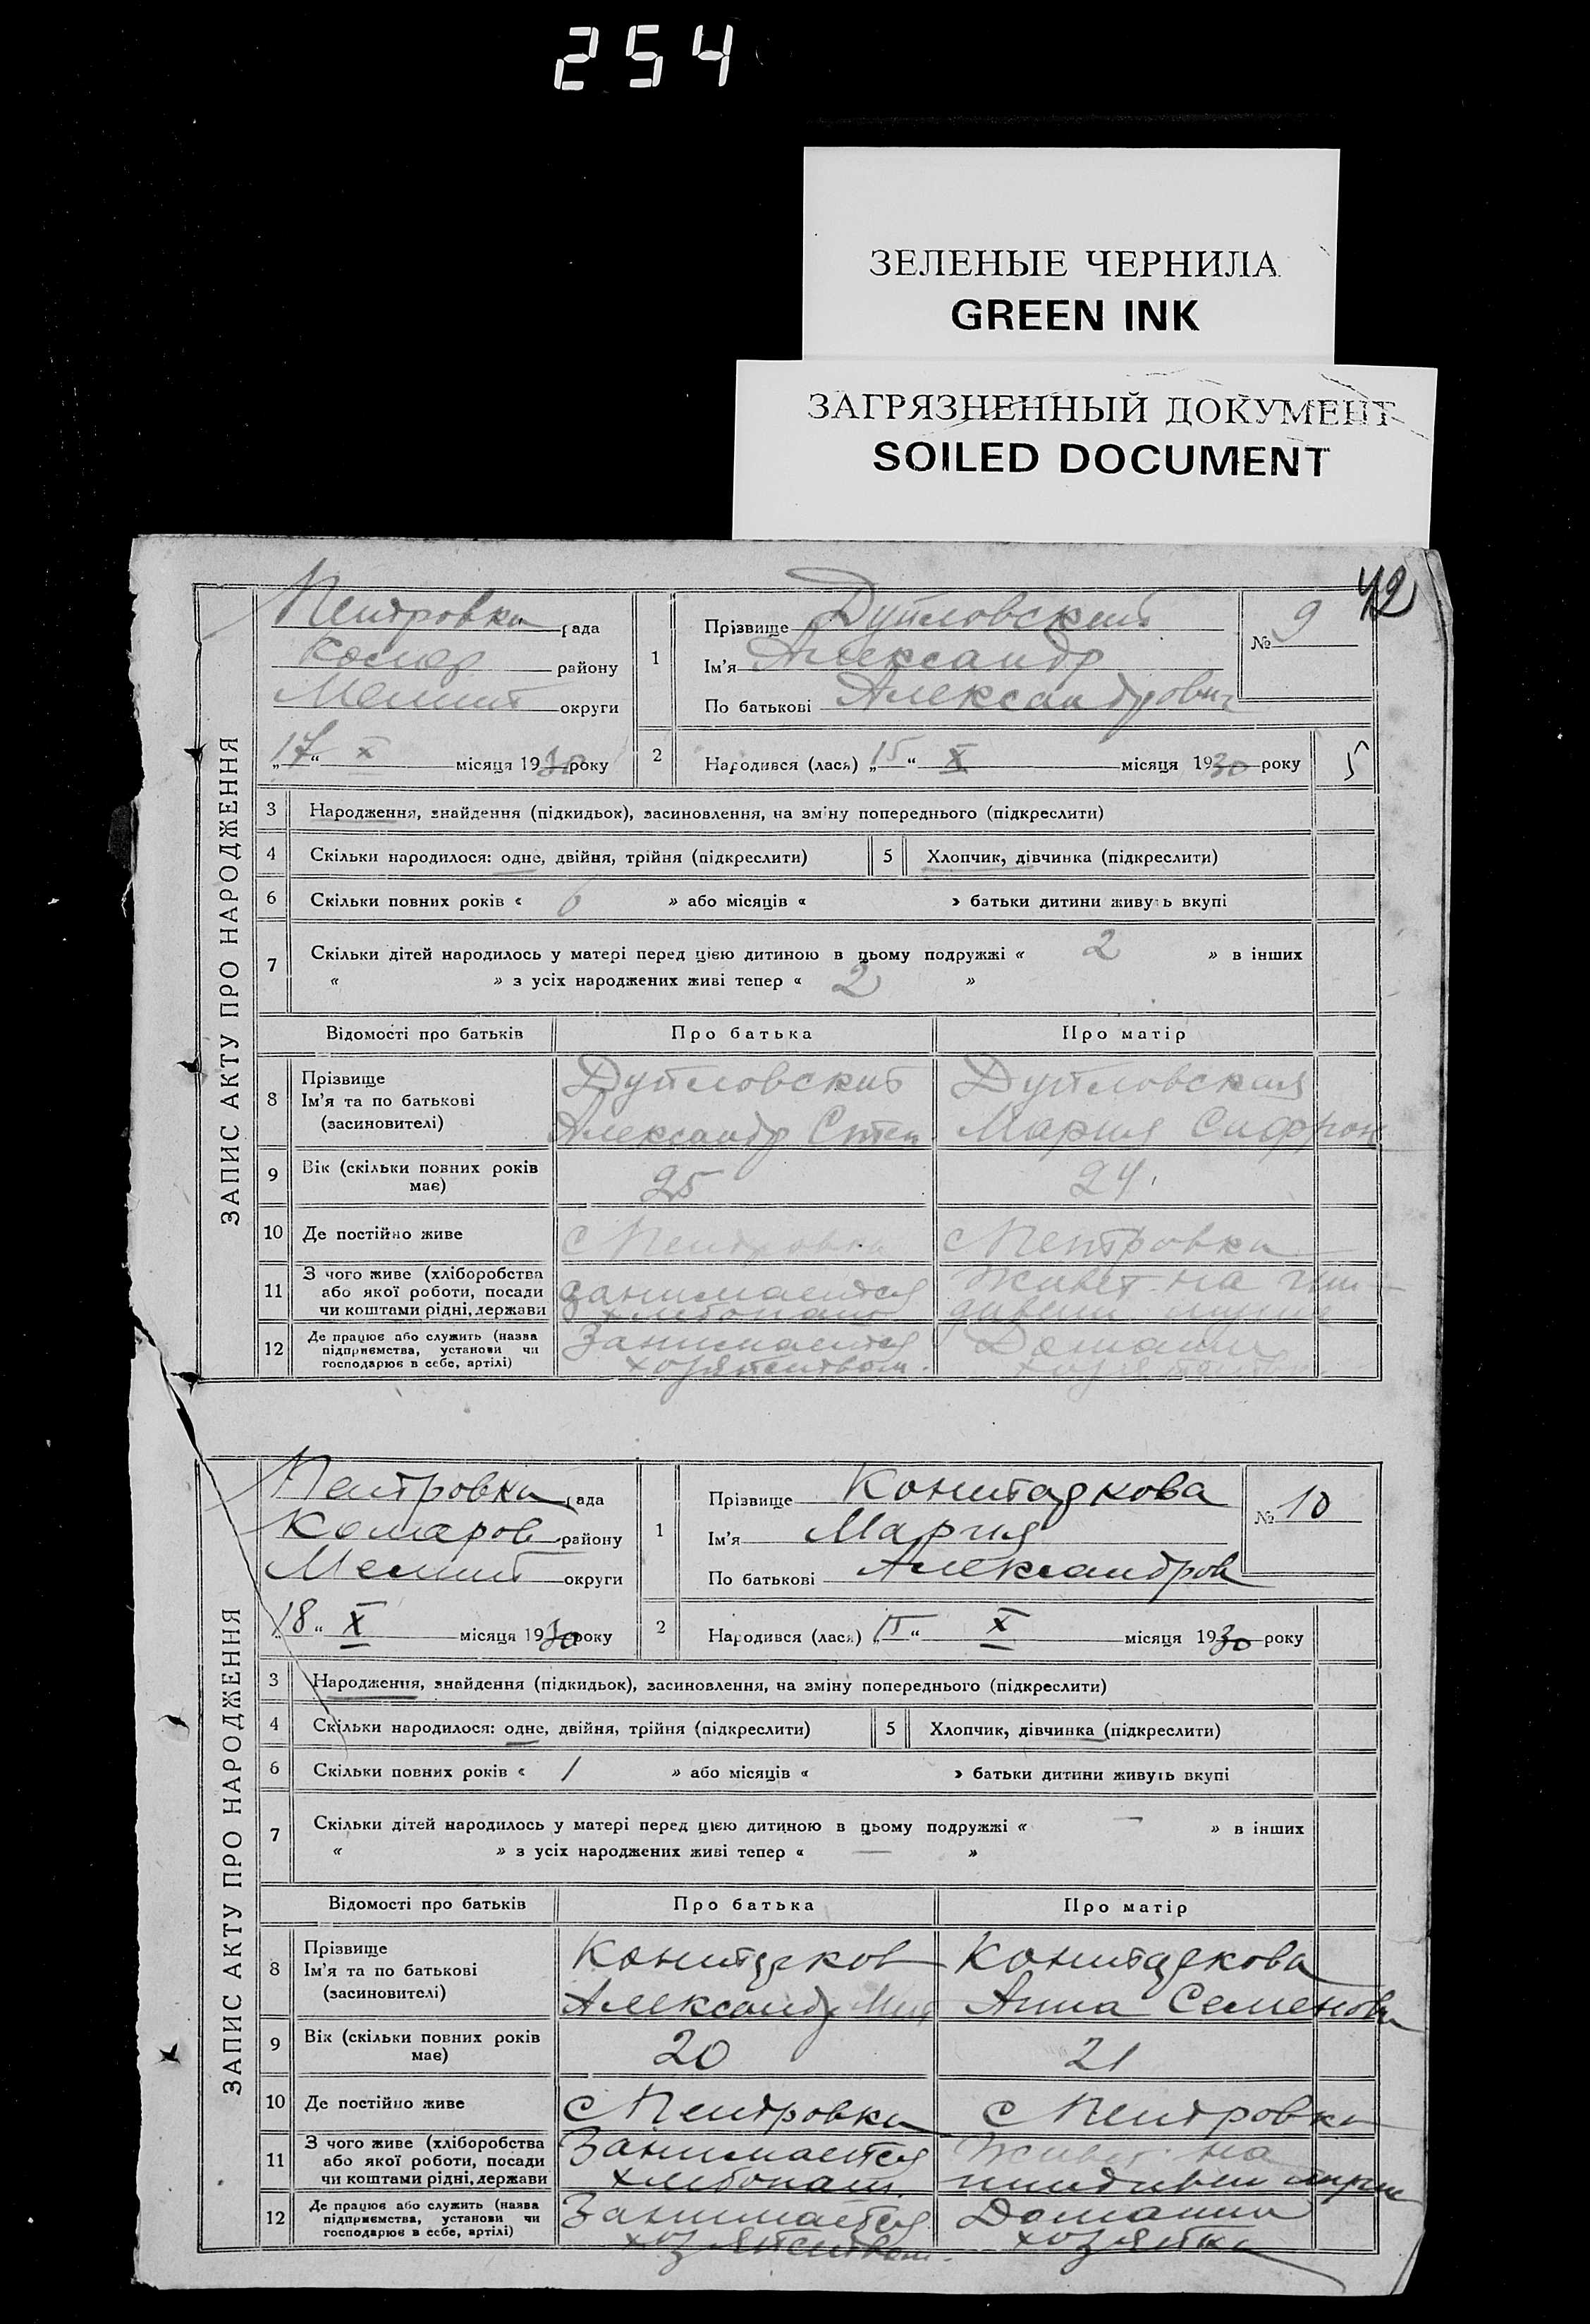 254
ЗЕЛЕНЫЕ ЧЕРНИЛА
GREEN INK
ЗАГРЯЗНЕННЫЙ ДОКУМЕНТ
SOILED DOCUMENT
42
ЗАПИС АКТУ ПРО НАРОДЖЕННЯ
Петровка рада
Комар району
округи
„17“ X місяця 1930 року
1
Прізвище
Ім'я Александр
По батькові Александрович
№ 9
2 Народився (лася) „15“ X місяця 1930 року
5
3 Народження, знайдення (підкидьок), засиновлення, на зміну попереднього (підкреслити)
4 Скільки народилося: одне, двійня, трійня (підкреслити) 5 Хлопчик, дівчинка (підкреслити)
6 Скільки повних років « 6 » або місяців « » батьки дитини живуть вкупі
7 Скільки дітей народилось у матері перед цією дитиною в цьому подружжі « 2 » в інших
« » з усіх народжених живі тепер « 2 »
Відомості про батьків Про батька Про матір
8 Прізвище
Ім'я та по батькові
(засиновителі)
Александр Степ
Мария
9 Вік (скільки повних років має) 25 24
10 Де постійно живе с Петровка с Петровка
11 З чого живе (хліборобства
або якої роботи, посади
чи коштами рідні, держави
занимается
Живет на
12 Де працює або служить (назва
підприємства, установи чи
господарює в себе, артілі)
Занимается
ЗАПИС АКТУ ПРО НАРОДЖЕННЯ
Петровка рада
Комаров району
округи
„18“ X місяця 1930 року
1
Прізвище
Ім'я Мария
По батькові Александров
№ 10
2 Народився (лася) „15“ X місяця 1930 року
3 Народження, знайдення (підкидьок), засиновлення, на зміну попереднього (підкреслити)
4 Скільки народилося: одне, двійня, трійня (підкреслити) 5 Хлопчик, дівчинка (підкреслити)
6 Скільки повних років « 1 » або місяців « » батьки дитини живуть вкупі
7 Скільки дітей народилось у матері перед цією дитиною в цьому подружжі « — » в інших
« » з усіх народжених живі тепер « — »
Відомості про батьків Про батька Про матір
8 Прізвище
Ім'я та по батькові
(засиновителі)
Александр
Анна Семенова
9 Вік (скільки повних років має) 20 21
10 Де постійно живе с Петровка с Петровка
11 З чого живе (хліборобства
або якої роботи, посади
чи коштами рідні, держави
Занимается
Живет на
12 Де працює або служить (назва
підприємства, установи чи
господарює в себе, артілі)
Занимается
Домашн
хозяйка